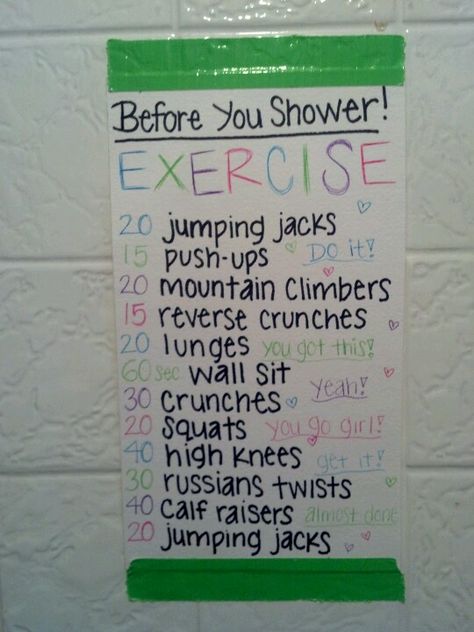 Before You Shower!
EXERCISE
20 jumping jacks
15 push-ups Do it!
20 mountain climbers
15 reverse crunches
20 lunges you got this!
60 sec wall sit
30 crunches yeah!
20 squats you go girl!
40 high knees get it!
30 russians twists
40 calf raisers almost done
20 jumping jacks